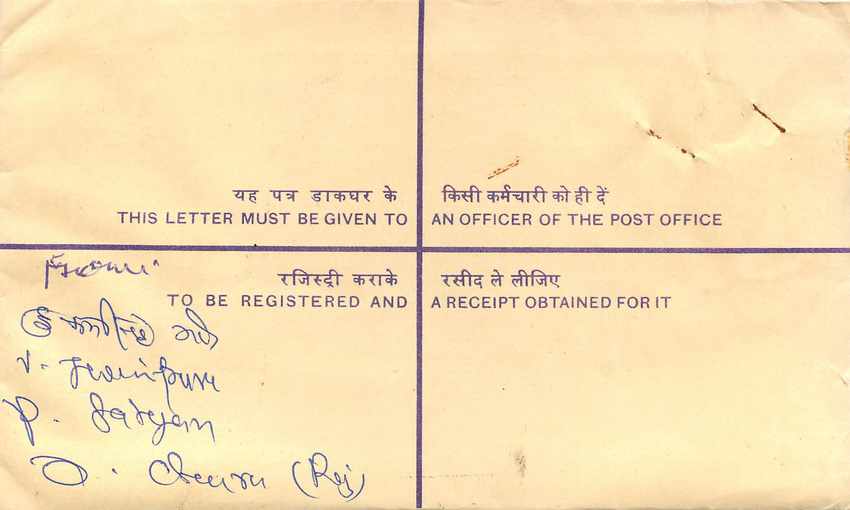 यह पत्र डाकघर के किसी कर्मचारी को ही दें
THIS LETTER MUST BE GIVEN TO AN OFFICER OF THE POST OFFICE
रजिस्ट्री कराके रसीद ले लीजिए
TO BE REGISTERED AND A RECEIPT OBTAINED FOR IT
From
V.
P.
D. Churu (Raj)